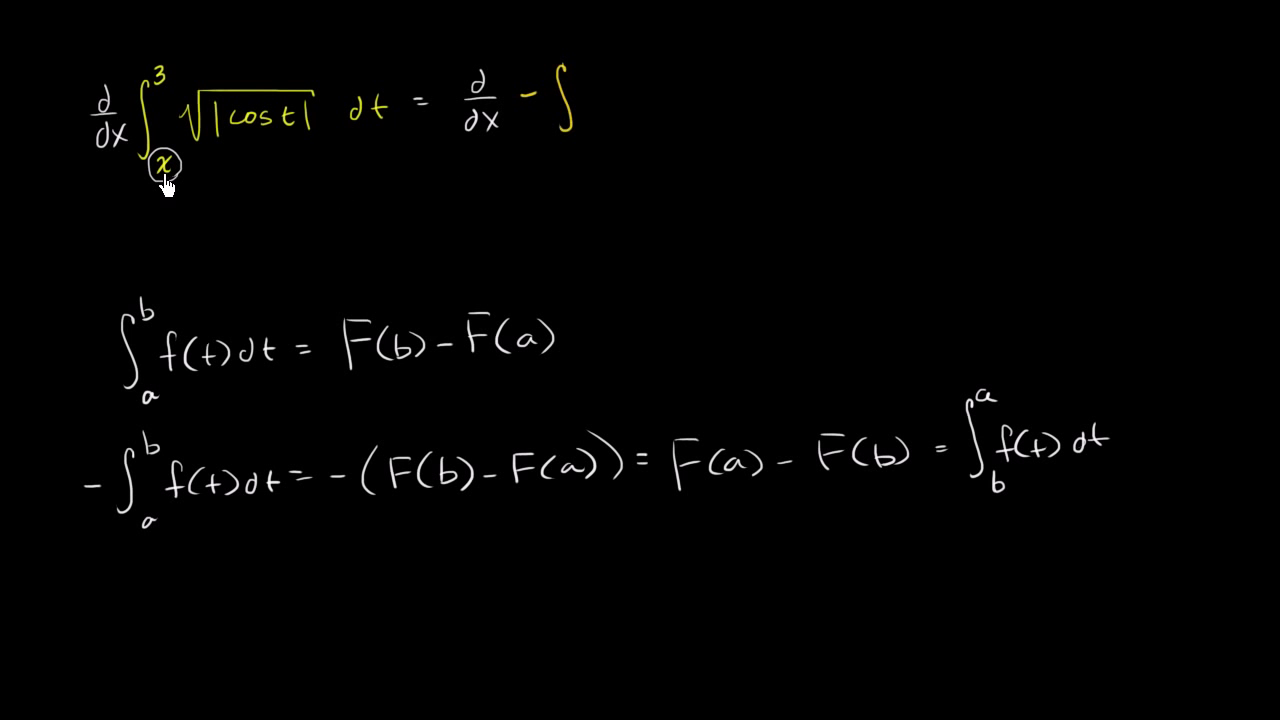 d/dx ∫_x^3 √|cos t| dt = d/dx - ∫
∫_a^b f(t)dt = F(b) - F(a)
-∫_a^b f(t)dt = -(F(b) - F(a)) = F(a) - F(b) = ∫_b^a f(t) dt